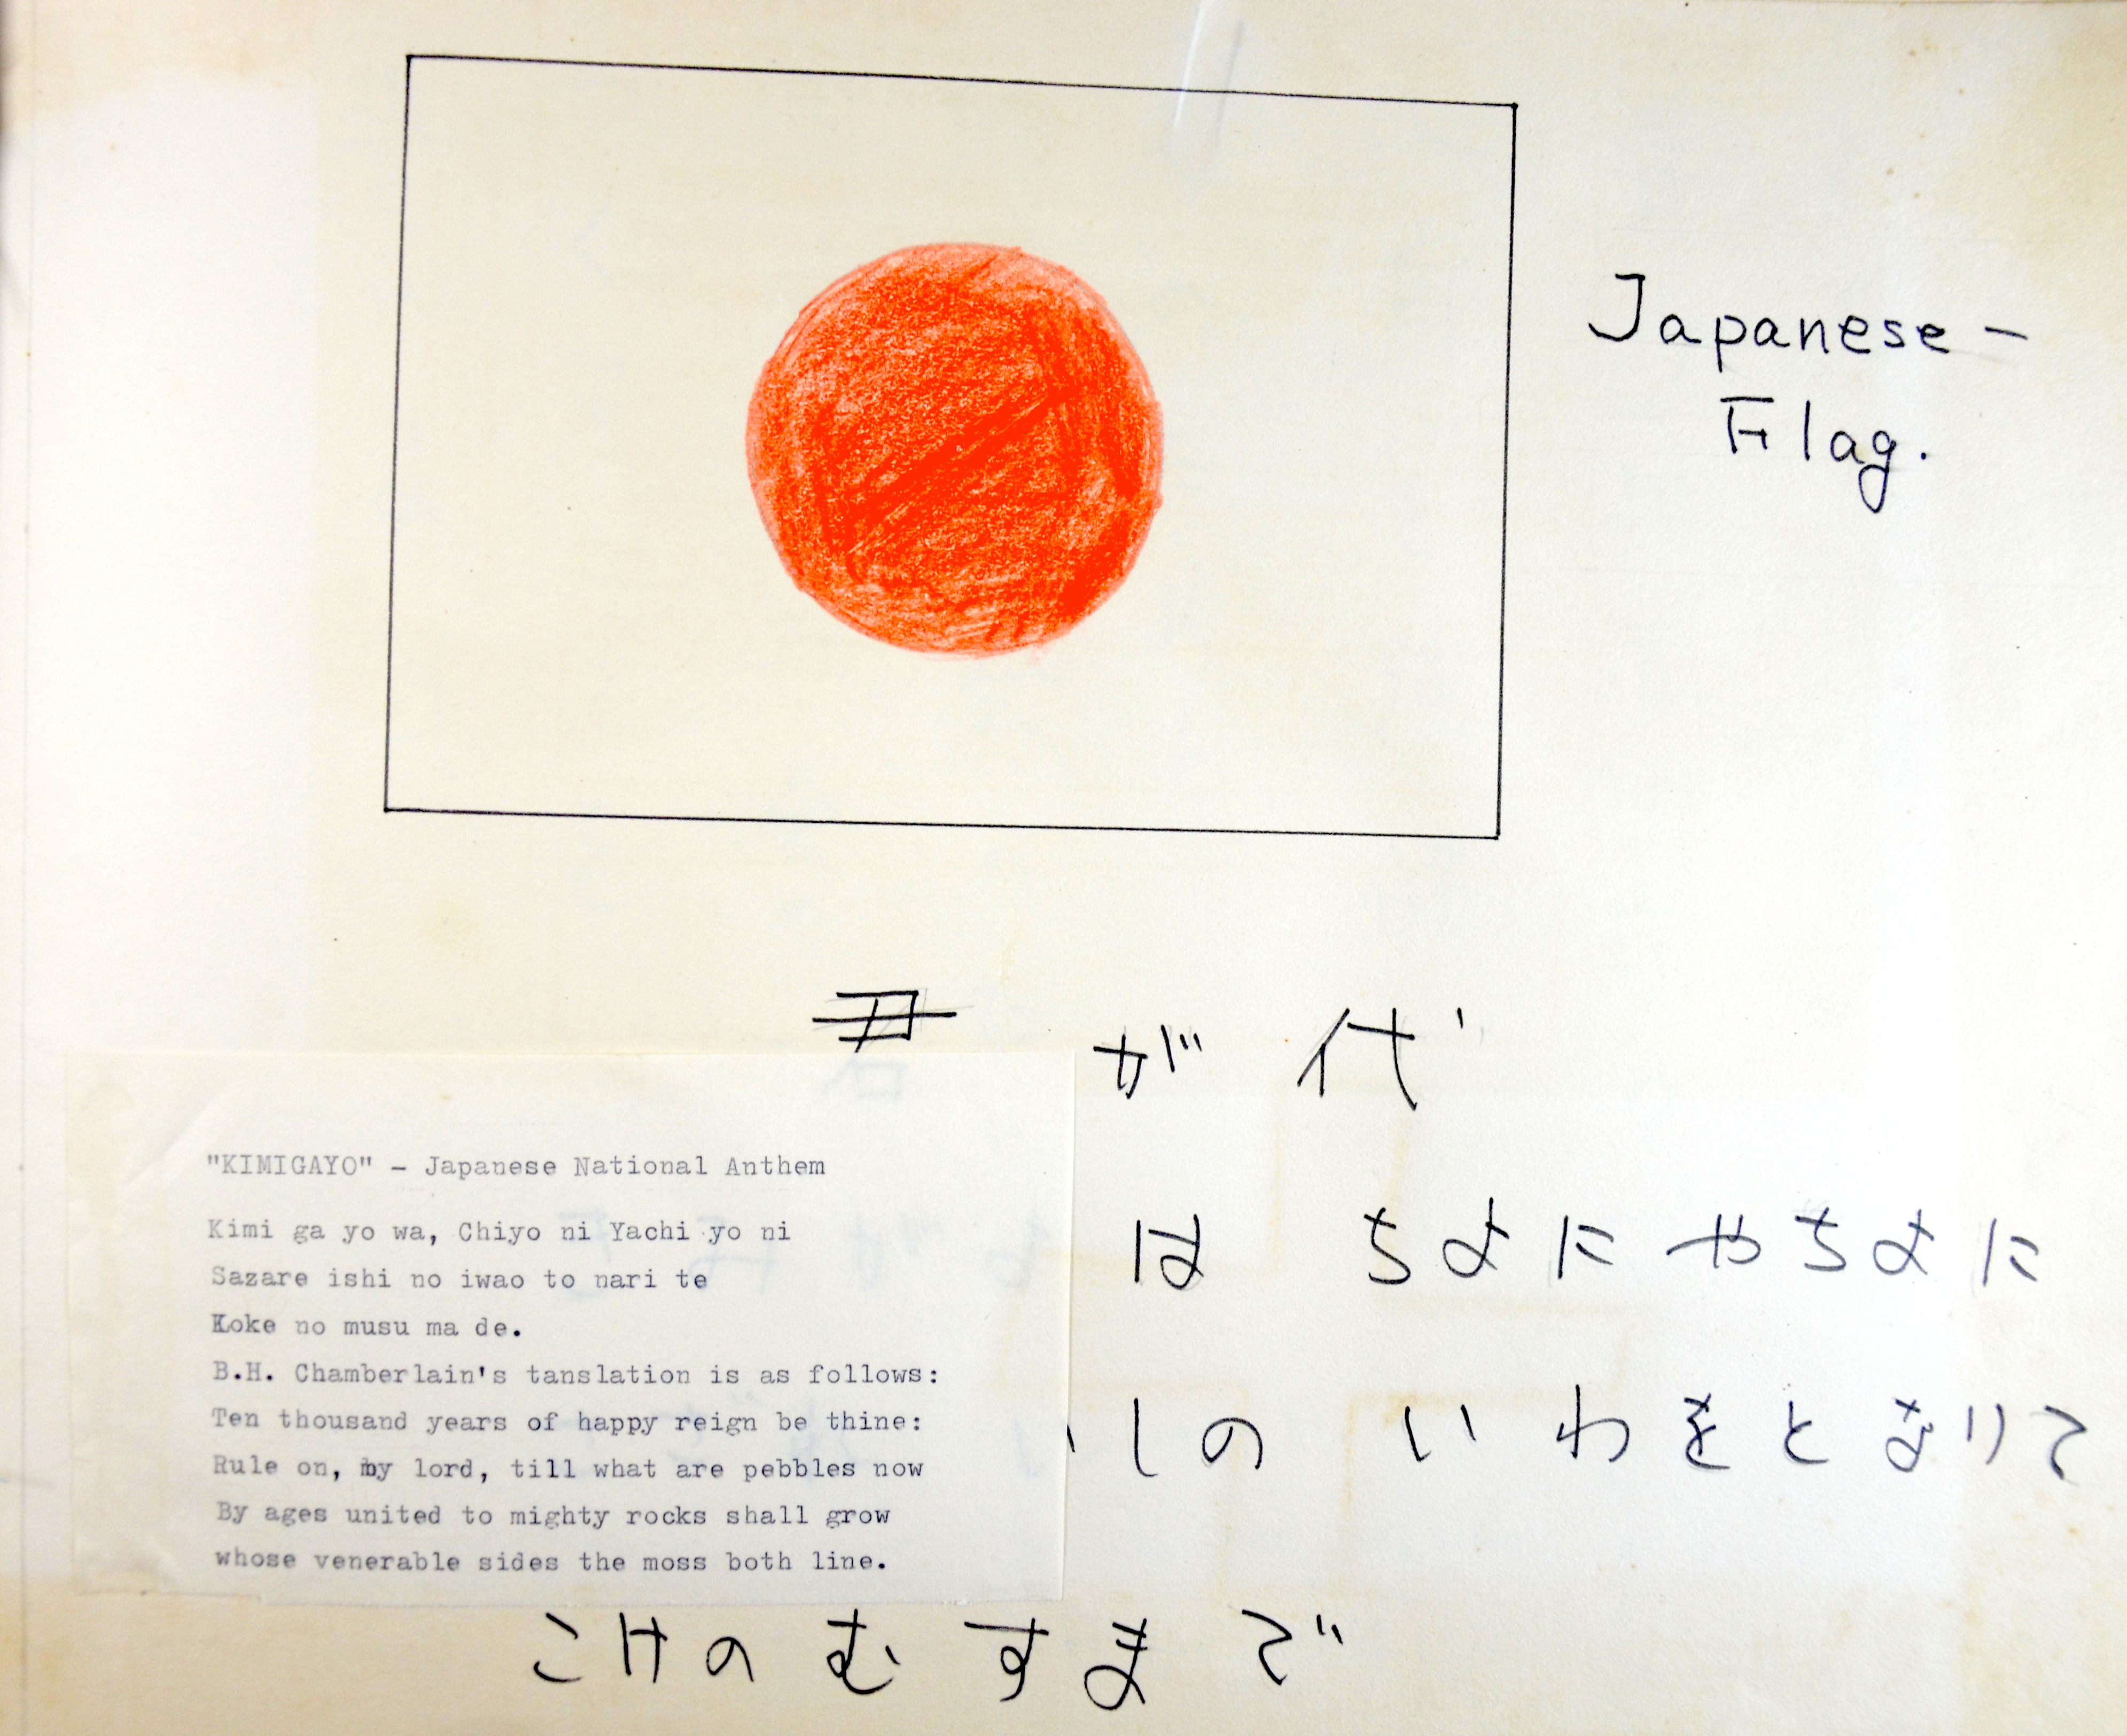 Japanese-
Flag.
君が代
"KIMIGAYO" - Japanese National Anthem
Kimi ga yo wa, Chiyo ni Yachi yo ni
Sazare ishi no iwao to nari te
Koke no musu ma de.
B.H. Chamberlain's tanslation is as follows:
Ten thousand years of happy reign be thine:
Rule on, my lord, till what are pebbles now
By ages united to mighty rocks shall grow
whose venerable sides the moss both line.
は ちよに やちよに
しの いわをとなりて
こけの むすまで